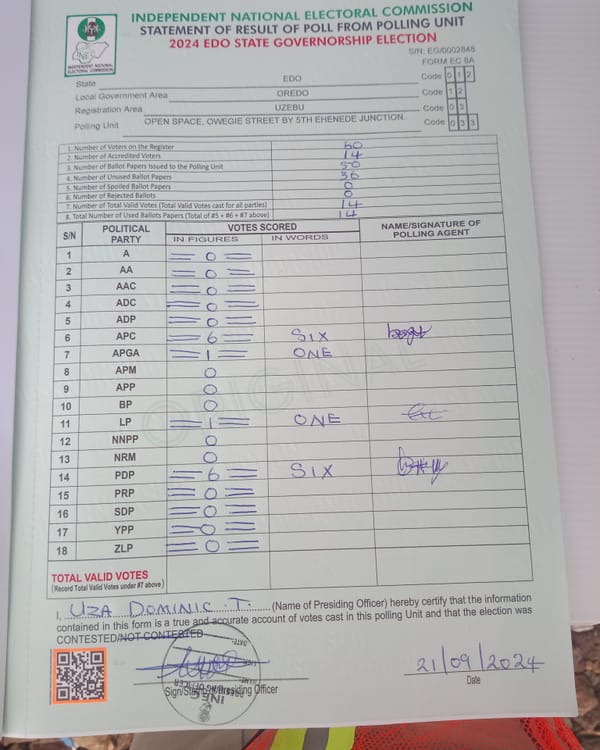 INDEPENDENT NATIONAL ELECTORAL COMMISSION
STATEMENT OF RESULT OF POLL FROM POLLING UNIT
2024 EDO STATE GOVERNORSHIP ELECTION
INEC
INDEPENDENT NATIONAL ELECTORAL COMMISSION
S/N: EG/0002848
FORM EC 8A
State EDO Code 0 1 2
Local Government Area OREDO Code 1 2
Registration Area UZEBU Code 0 3
Polling Unit OPEN SPACE, OWEGIE STREET BY 5TH EHENEDE JUNCTION. Code 0 3 3
1. Number of Voters on the Register 60
2. Number of Accredited Voters 14
3. Number of Ballot Papers Issued to the Polling Unit 50
4. Number of Unused Ballot Papers 36
5. Number of Spoiled Ballot Papers 0
6. Number of Rejected Ballots 0
7. Number of Total Valid Votes (Total Valid Votes cast for all parties) 14
8. Total Number of Used Ballots Papers (Total of #5 + #6 + #7 above) 14
S/N POLITICAL PARTY VOTES SCORED NAME/SIGNATURE OF POLLING AGENT
IN FIGURES IN WORDS
1 A 0
2 AA 0
3 AAC 0
4 ADC 0
5 ADP 0
6 APC 6 SIX
7 APGA 1 ONE
8 APM 0
9 APP 0
10 BP 0
11 LP 1 ONE
12 NNPP 0
13 NRM 0
14 PDP 6 SIX
15 PRP 0
16 SDP 0
17 YPP 0
18 ZLP 0
ORIGINAL
TOTAL VALID VOTES
(Record Total Valid Votes under #7 above)
I, UZA DOMINIC .T. (Name of Presiding Officer) hereby certify that the information
contained in this form is a true and accurate account of votes cast in this polling Unit and that the election was
CONTESTED/NOT CONTESTED
Sign/Stamp of Presiding Officer
21/09/2024
Date
DATE
INEC